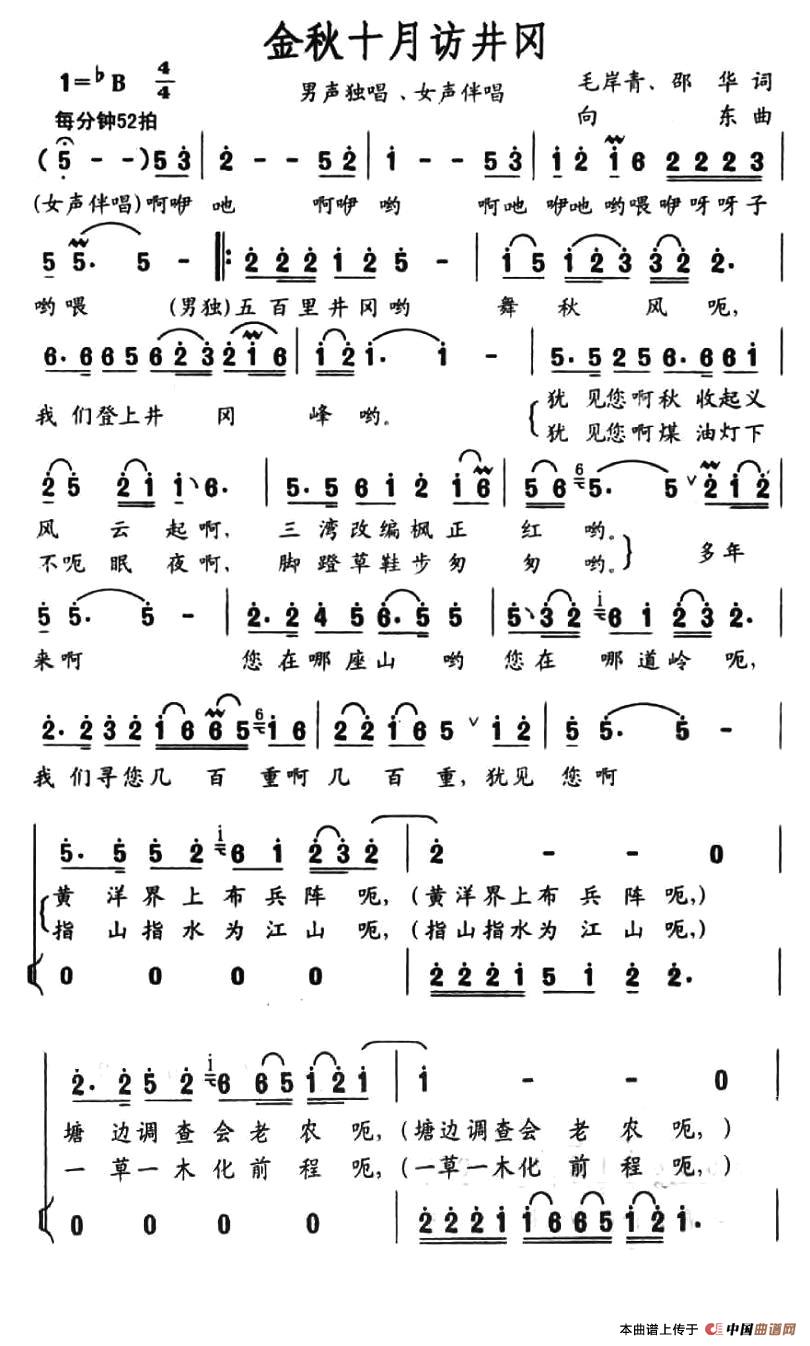 金秋十月访井冈
1=♭B 4/4
男声独唱、女声伴唱
毛岸青、邵 华 词
向 东 曲
每分钟52拍
(5 - -) 5 3 | 2 - - 5 2 | 1 - - 5 3 | 1 2 1 6 2 2 2 3 |
(女声伴唱)啊咿 吔 啊咿 哟 啊吔 咿吔 哟喂咿呀呀子
5 5. 5 - |: 2 2 2 1 2 5 - | 1 5 1 2 3 3 2 2. |
哟喂 (男独)五百里井冈哟 舞 秋 风 呃,
6. 6 6 5 6 2 3 2 1 6 | 1 2 1. 1 - | 5. 5 2 5 6. 6 6 1 |
我 们登上井 冈 峰 哟。 犹 见您啊秋 收起义
犹 见您啊煤 油灯下
2 5 2 1 1 6. | 5. 5 6 1 2 1 6 | 5 6 6 5. 5 ∨ 2 1 2 |
风 云 起啊, 三 湾改编枫正 红 哟。 多年
不呃 眠 夜啊, 脚 蹬草鞋步匆 匆 哟。
5 5. 5 - | 2. 2 4 5 6. 5 5 | 5 3 2 1 6 1 2 3 2. |
来啊 您在哪座山 哟 您在 哪道岭 呃,
2. 2 3 2 1 6 6 5 6 1 6 | 2 2 1 6 5 ∨ 1 2 | 5 5. 5 - |
我 们寻您几 百 重啊 几 百 重, 犹见 您啊
5. 5 5 2 1 6 1 2 3 2 | 2 - - 0 |
黄 洋界上布兵阵 呃,(黄洋界上布兵阵 呃,)
指 山指水为江山 呃,(指山指水为江山 呃,)
0 0 0 0 | 2 2 2 1 5 1 2 2. |
2. 2 5 2 1 6 6 5 1 2 1 | 1 - - 0 |
塘 边调查会老农 呃,(塘边调查会老农 呃,)
一 草一木化前程 呃,(一草一木化前程 呃,)
0 0 0 0 | 2 2 2 1 1 6 6 5 1 2 1. |
本曲谱上传于 中国曲谱网